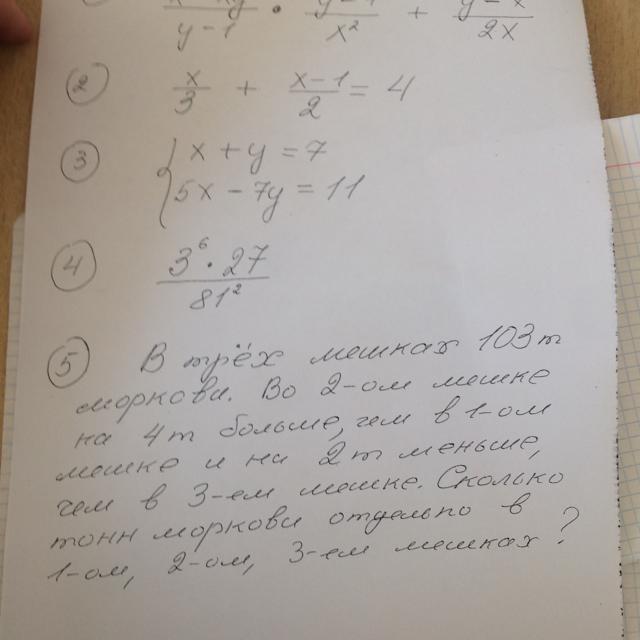 y-1 · x² + 2x
② x/3 + x-1/2 = 4
③ { x + y = 7
5x - 7y = 11
④ 3⁶ · 27 / 81²
⑤ В трёх мешках 103т
моркови. Во 2-ом мешке
на 4т больше, чем в 1-ом
мешке и на 2т меньше,
чем в 3-ем мешке. Сколько
тонн моркови отдельно в
1-ом, 2-ом, 3-ем мешках?